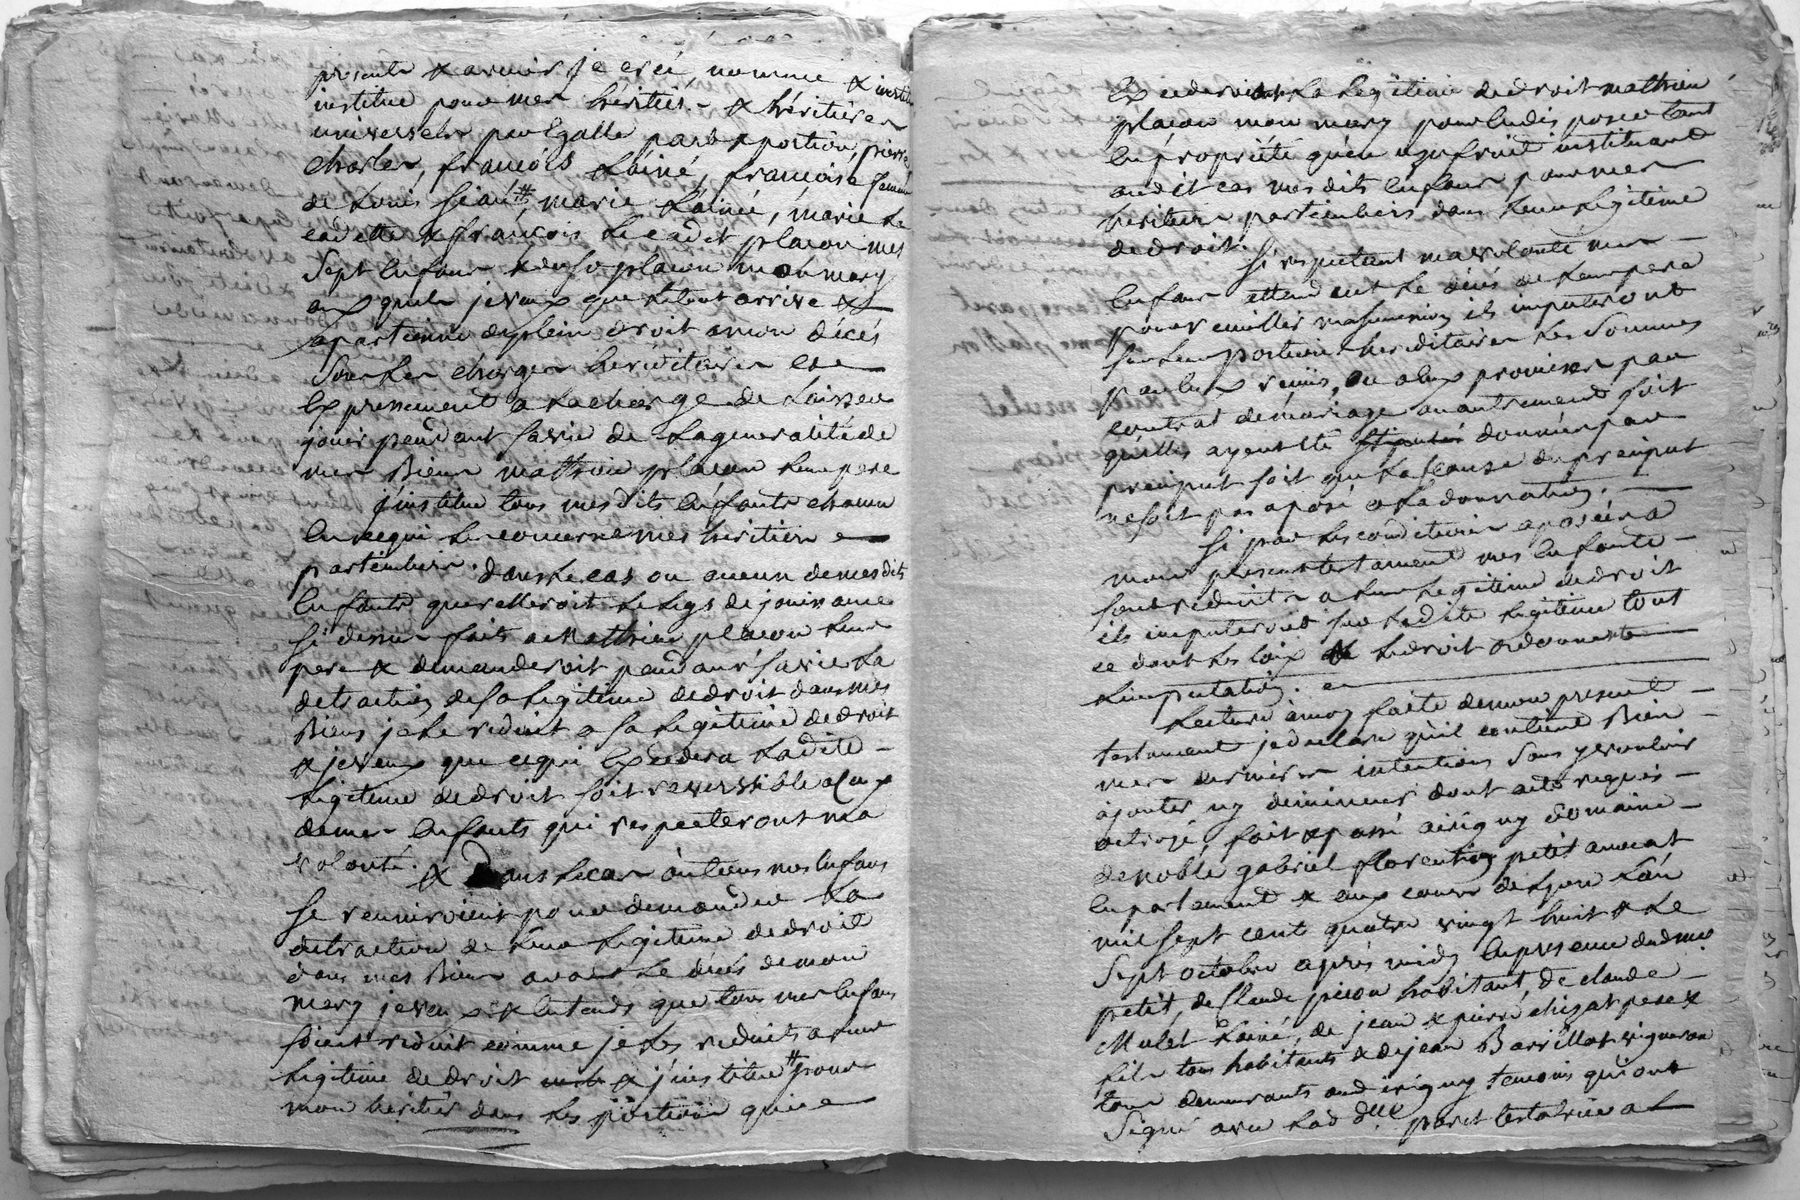 presents & avenir je créé, nomme & instit
institue pour mes héritiers & héritieres
universels par Egalle part & portion, pierre
charles, françois Lainé, françoise femme
de Louis marie Lainée, marie La
cadette & françois Le cadet placon mes
Sept Enfans & dudo placon mon mary
auxquels je veux que Letout arrive &
apartienne deplein droit amon décés
Sous Les charges héréditaires &
Expressement a Lacharge de Laisser
jouir pendant savie de Lageneralité de
mes Biens mathieu placon Leur pere
j'institue tous mesdits Enfants chacun
Encequi Le concerne mes héritiers
particuliers. dans Le cas ou aucun demesdits
Enfants querelleroit Le Legs de jouissance
si dessus fait a Mathieu placon Leur
pere & demanderoit pendant savie La
detraction desa Legitime dedroit dansmes
Biens je Le reduit a sa Legitime dedroit
& je veux que cequi Excedera Ladite
Legitime dedroit soit reversible aceux
demes Enfants qui respecteront ma
volonté.
& Dans Lecas oùtous mes Enfans
se reuniroient pour demander La
detraction de Leur Legitime dedroit
dans mes Biens avant Le décés demon
mary je veux & Entends que tous mes Enfans
soient reduit comme je Les reduits a Leur
Legitime de droit & j'institue pour
mon héritier dans Les portions qui
Excederoient La Legitime dedroit mathieu
placon mon mary pour Endisposer tant
En propriété qu'en usufruit instituant
audit cas mesdits Enfans pour mes
héritiers particuliers dans Leur Legitime
dedroit.
Si respectant mavolonté mes
Enfans attendent Le décés de Leur pere
pour recuillir masuccession ils imputeront
sur Leur portions héréditaires Les Sommes
par Eux reçus, ou a Eux promises par
contrat demariage ou autrement soit
qu'elles ayent Eté données par
preciput soit que Laclause depreciput
nesoit pas aposé a La donnation.
Si par Les conditions aposées a
mon present testament mes Enfants
sont reduits a Leur Legitime dedroit
ils imputeront sur Ladite Legitime tout
ce dont Les loix & Ledroit ordonnent
L'imputation.
Lecture àmoy faite demon present
testament je declare qu'il contient Bien
mes dernieres intentions Sans y vouloir
ajouter ny diminuer dont acte requis
octroyé, fait & passé airigny domaine
de noble gabriel florentin petit avocat
En parlement & aux cours de Lyon L'an
mil sept cent quatre vingt huit & Le
Sept octobre après midy En presence dudsieur
petit, de Claude picon habitant, de claude
Mulet Lainé, de jean & pierre chizat pere &
fils tous habitants & de jean Barrillot vigneron
tous demeurants aud irigny temoins qui ont
Signé avec Lad Dlle testatrice a